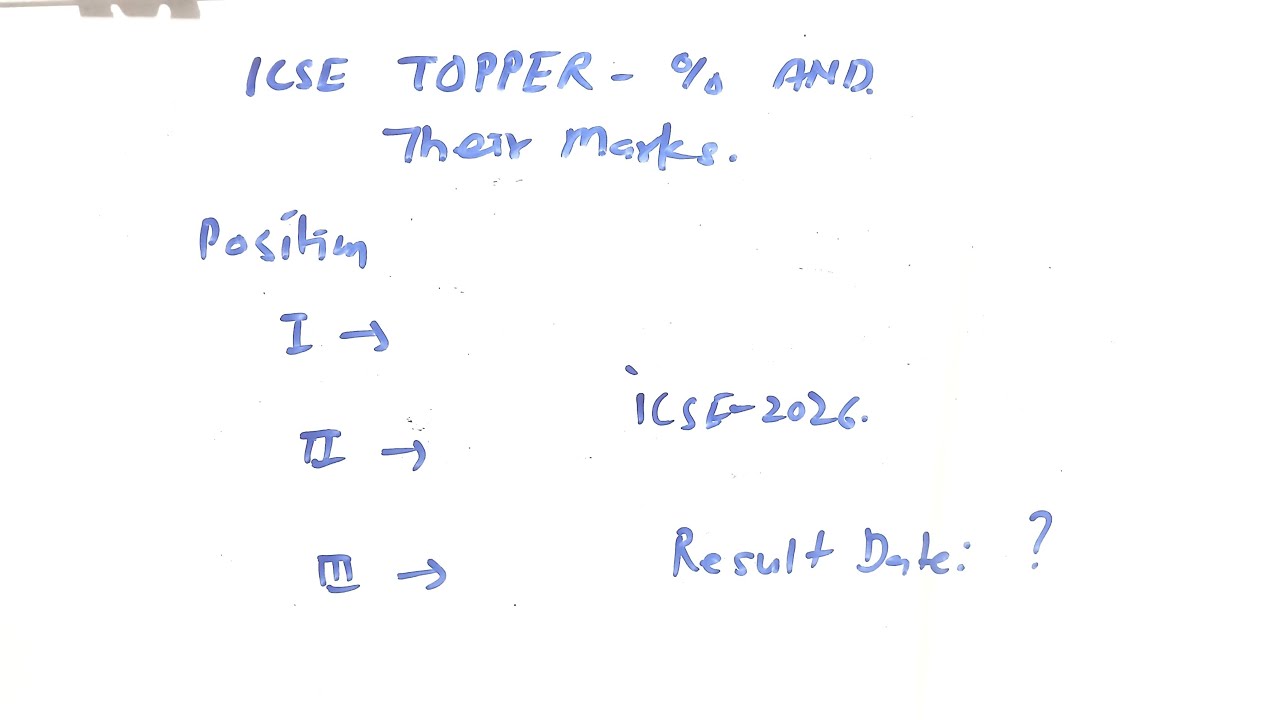 ICSE TOPPER - % AND.
Their Marks.
Position
I →
II →
III →
iCSE-2026.
Result Date: ?